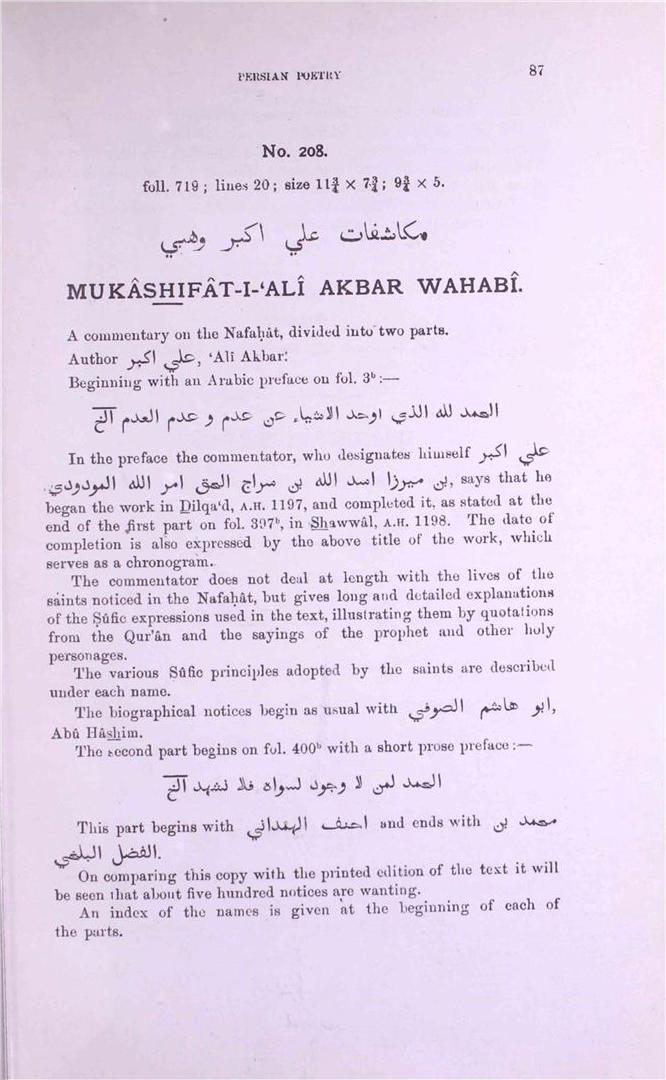 PERSIAN POETRY 87
No. 208.
foll. 719; lines 20; size 11¾ × 7¾; 9¾ × 5.
مكاشفات علي اكبر وهبي
MUKÂSHIFÂT-I-‘ALÎ AKBAR WAHABÎ.
A commentary on the Nafaḥât, divided into two parts.
Author علي اكبر, ‘Alî Akbar:
Beginning with an Arabic preface on fol. 3ᵇ:—
الحمد لله الذي اوجد الاشياء عن عدم و عدم العدم الخ
In the preface the commentator, who designates himself علي اكبر
بن ميرزا اسد الله بن سراج الحق امر الله المودودي, says that he
began the work in Dilqa‘d, A.H. 1197, and completed it, as stated at the
end of the first part on fol. 397ᵇ, in Shawwâl, A.H. 1198. The date of
completion is also expressed by the above title of the work, which
serves as a chronogram.
The commentator does not deal at length with the lives of the
saints noticed in the Nafaḥât, but gives long and detailed explanations
of the Ṣûfic expressions used in the text, illustrating them by quotations
from the Qur’ân and the sayings of the prophet and other holy
personages.
The various Ṣûfic principles adopted by the saints are described
under each name.
The biographical notices begin as usual with ابو هاشم الصوفي,
Abû Hâshim.
The second part begins on fol. 400ᵇ with a short prose preface:—
الحمد لمن لا وجود لسواه فلا نشهد الخ
This part begins with احنف الهمداني and ends with محمد بن
الفضل البلخي.
On comparing this copy with the printed edition of the text it will
be seen that about five hundred notices are wanting.
An index of the names is given at the beginning of each of
the parts.